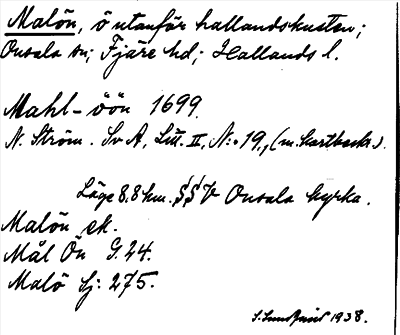 Malön, ö utanför hallandskusten;
Onsala sn; Fjäre hd; Hallands l.
Mahl-öön 1699.
N. Ström. Sv A, Litt. II, N:o 19, (m. kartbeskr.).
Läge 8.8 km. SSV Onsala kyrka.
Malön ek.
Mål Ön G. 24.
Malö Sj: 275.
1938.